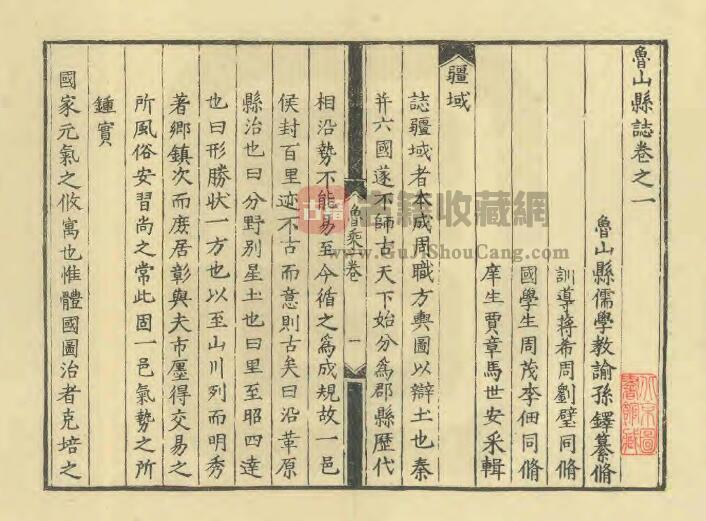 魯山縣誌卷之一
魯山縣儒學教諭孫鐸纂脩
訓導蔣希周劉璧同脩
國學生周茂李佃同脩
庠生賈章馬世安采輯
疆域
誌疆域者本成周職方輿圖以辯土也秦
并六國遂不師古天下始分為郡縣歷代
魯乘一卷
一
相沿勢不能易至今循之為成規故一邑
侯封百里迹不古而意則古矣曰沿革原
縣治也曰分野別星土也曰里至昭四達
也曰形勝狀一方也以至山川列而明秀
著鄉鎮次而庶居彰與夫市廛得交易之
所風俗安習尚之常此固一邑氣勢之所
鍾實
國家元氣之攸寓也惟體國圖治者克培之
古籍收藏網
www.GuJiShouCang.com